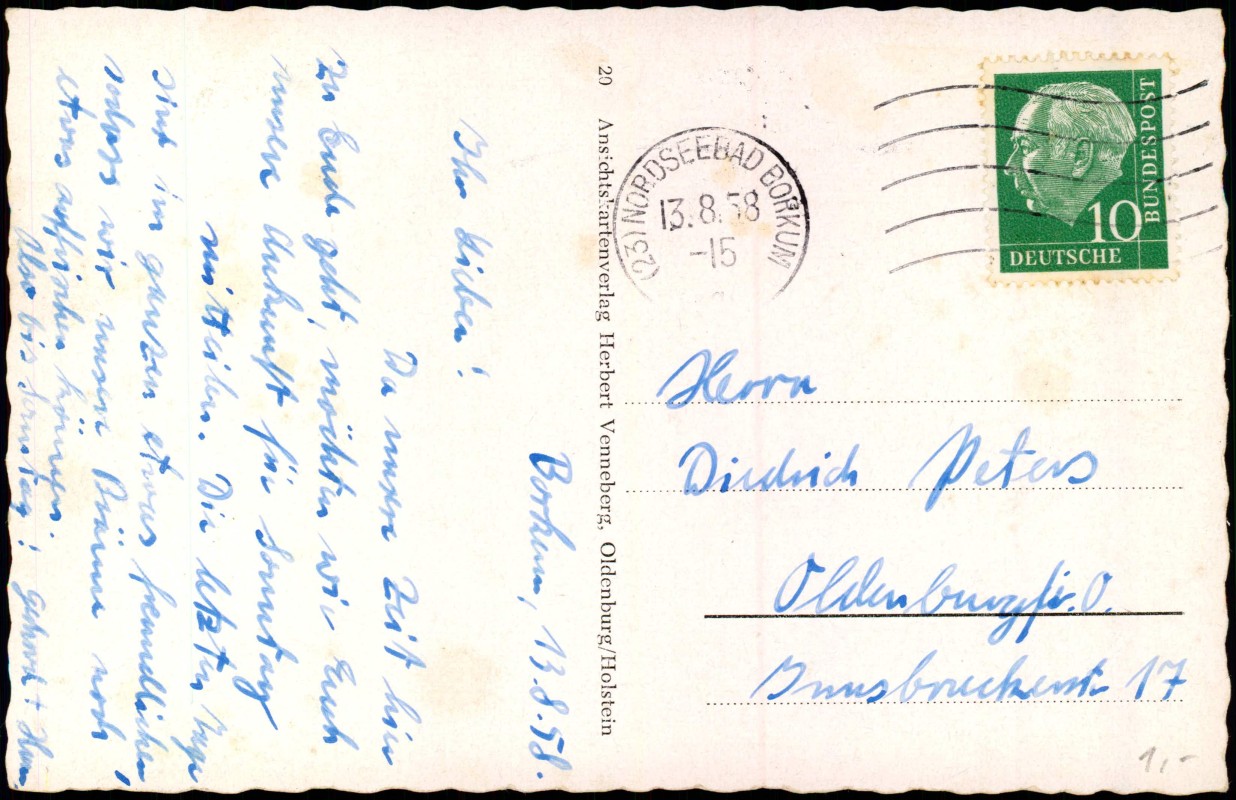 Borkum, 13.8.58.
Ihr Lieben!
Da unsere Zeit hier
zu Ende geht, möchten wir Euch
unsere Ankunft für Sonntag
mitteilen. Die letzten Tage
sind im ganzen etwas freundlicher,
sodass wir unsere Bräune noch
etwas auffrischen können.
Also bis Sonntag!
20 Ansichtskartenverlag Herbert Venneberg, Oldenburg/Holstein
(23) NORDSEEBAD BORKUM
13.8.58
-15
10
DEUTSCHE
BUNDESPOST
Herrn
Diedrich Peters
Oldenburg/i.O.
Innsbruckerstr. 17
1,-